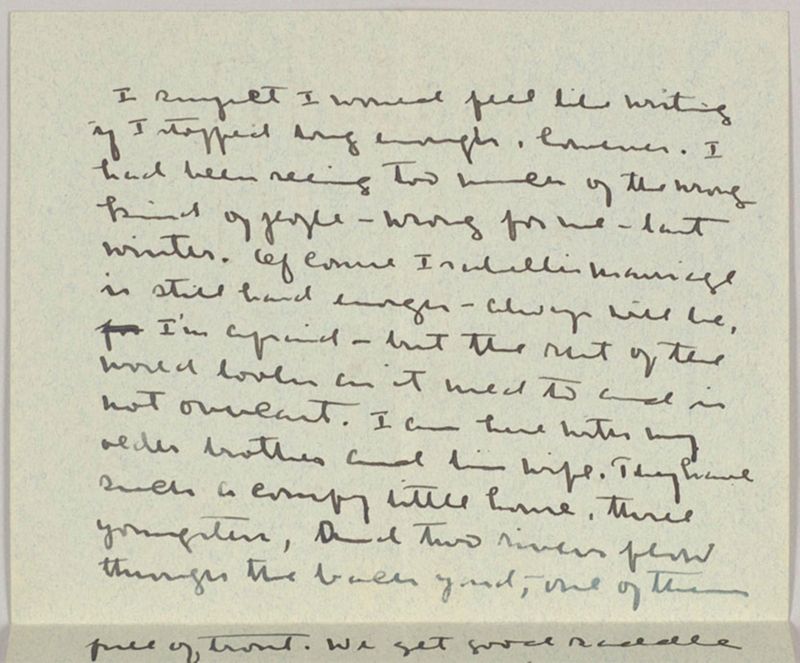 I suspect I would feel like writing
if I stopped long enough, however. I
had been seeing too much of the wrong
kind of people – wrong for me – last
winter. Of course Isabelle's marriage
is still hard enough – always will be,
for I'm afraid – but the rest of the
world looks as it used to and is
not overcast. I am here with my
older brother and his wife. They have
such a comfy little home, three
youngsters, and two rivers flow
through the back yard, – one of them
full of trout. We get good saddle